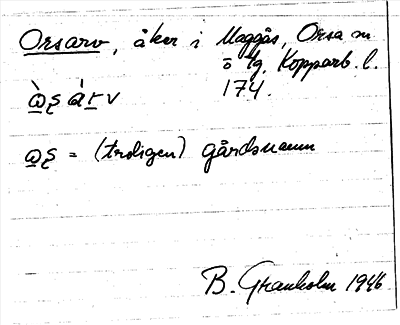 Orsarv, åker i Maggås, Orsa sn
ö tg, Kopparb. l.
174.
ὼ̲ʂ á r̲ v
ω̲ʂ = (troligen) gårdsnamn
B. Granholm 1946